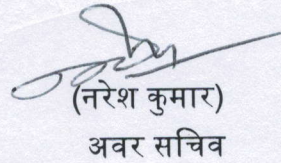 (नरेश कुमार)
अवर सचिव